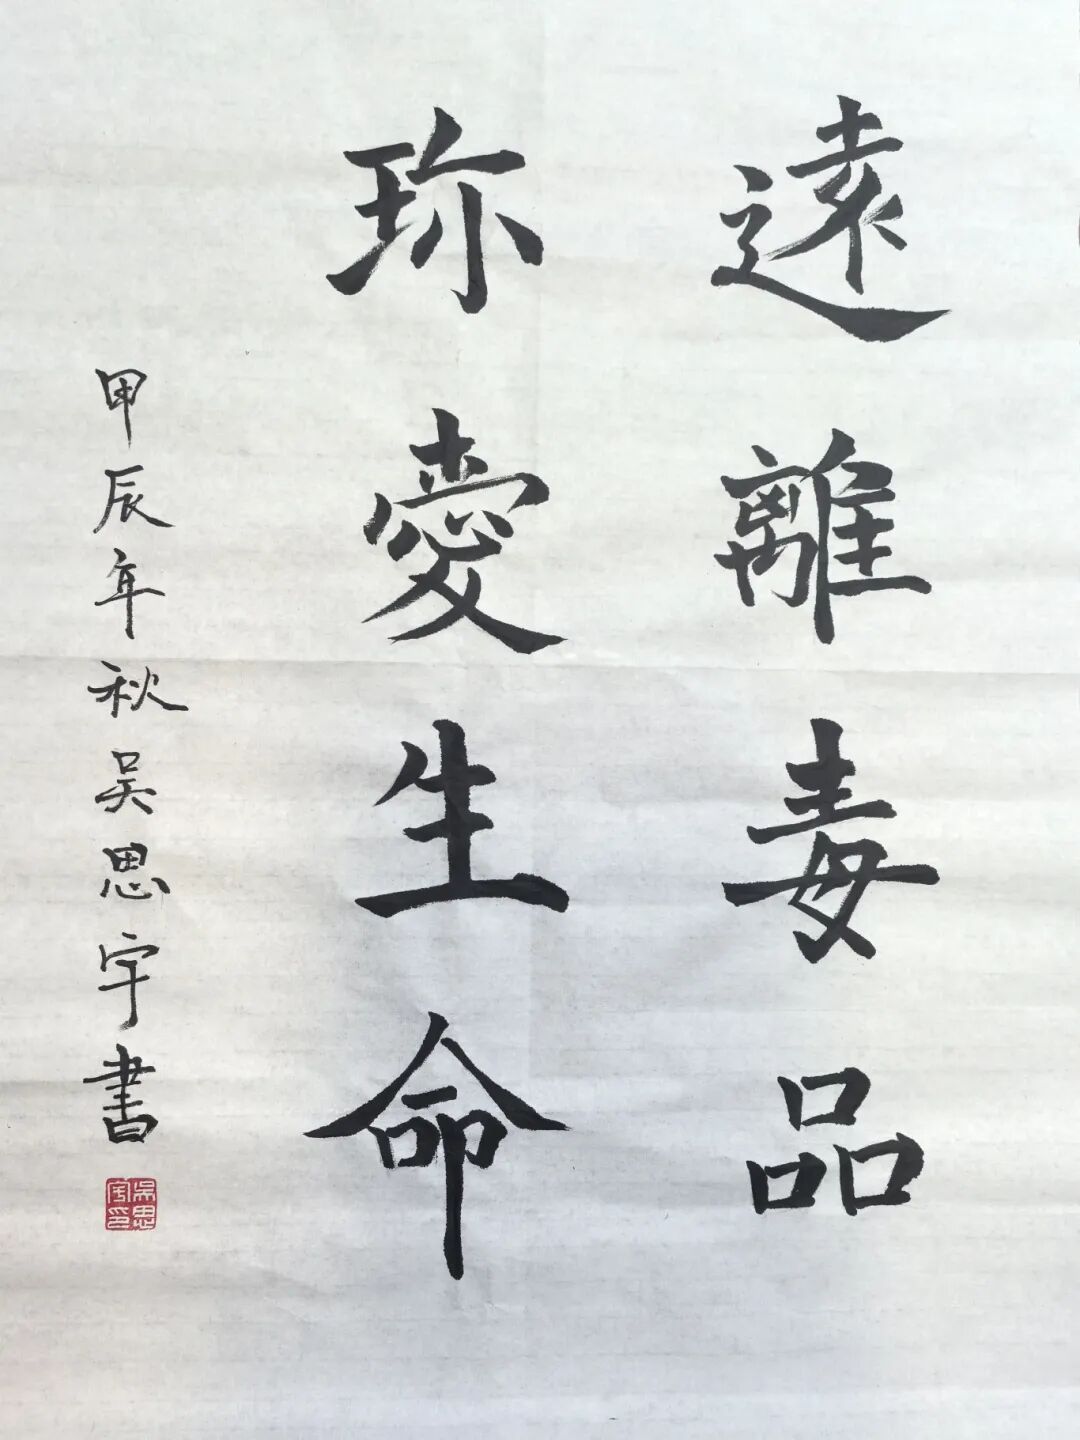 遠離毒品
珎愛生命
甲辰年秋吴思宇書
吴思宇印